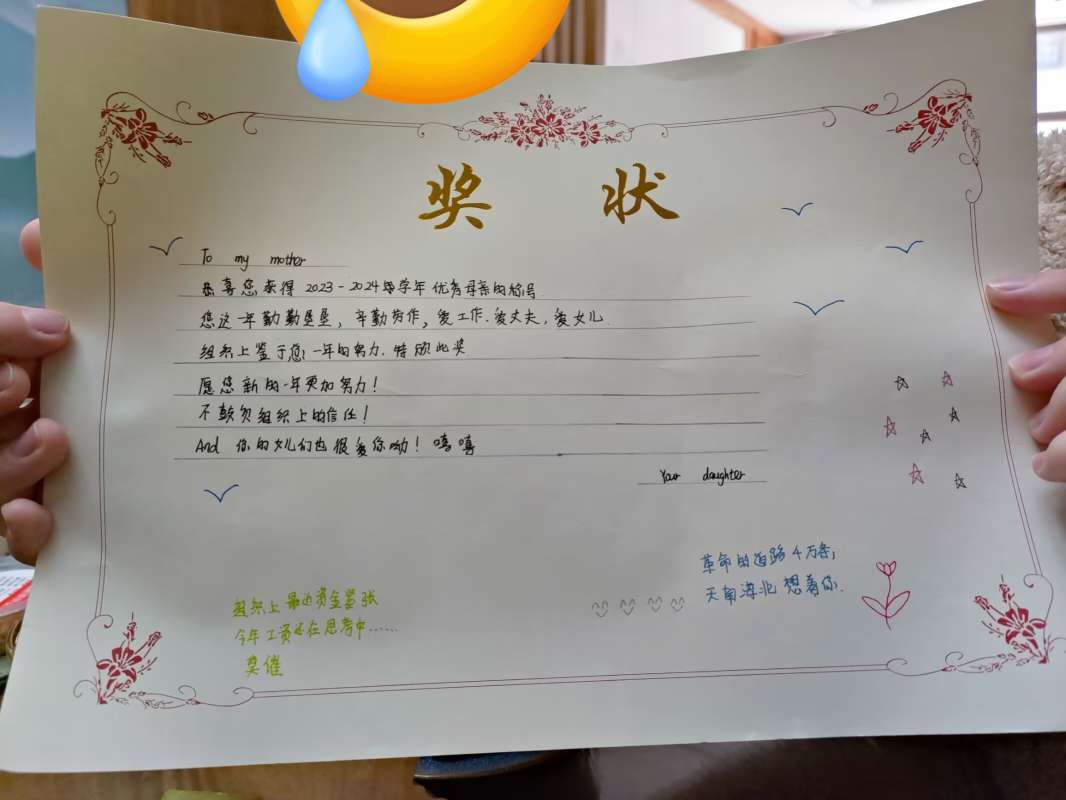 奖状
To my mother
恭喜您获得2023-2024学年优秀母亲的称号
您这一年勤勤垦垦，辛勤劳作，爱工作、爱丈夫、爱女儿.
组织上鉴于您一年的努力.特颁此奖
愿您新的一年更加努力！
不辜负组织上的信任！
And 你的女儿们也很爱你呦！嘻嘻
Your daughter
革命的道路4万条，
天南海北想着你.
组织上最近资金紧张
今年工资还在思考中......
莫催